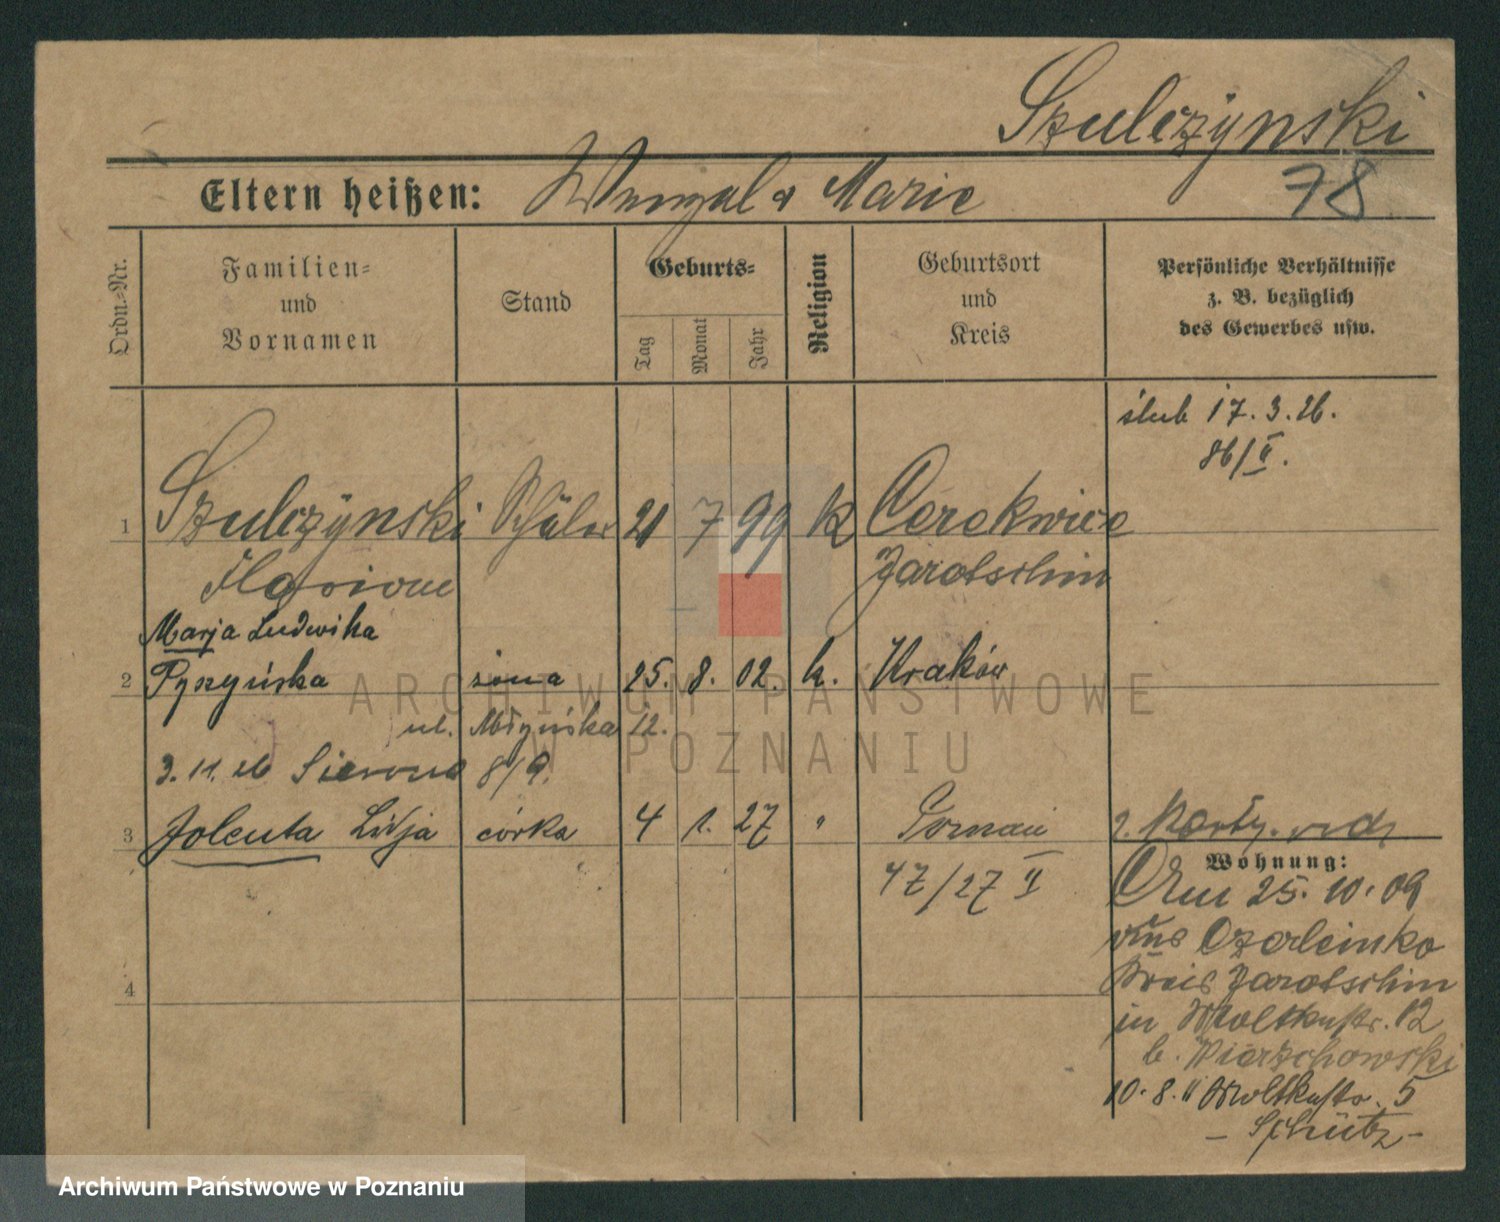 Szulczynski
78
Eltern heißen: Wenzel & Marie
Ordn.-Nr.
Familien-
und
Vornamen
Stand
Geburts-
Tag
Monat
Jahr
Religion
Geburtsort
und
Kreis
Persönliche Verhältnisse
z. B. bezüglich
des Gewerbes usw.
ślub 17.3.26.
86/II.
1 Szulczynski Schüler 21 7 99 k Cerekwice
Florian Jarotschin
Marja Ludwika
2 Pyszyńska żona 25. 8. 02. k. Kraków
ul. Młyńska 12.
3.11.26 8/9.
3 Jolenta Lidja córka 4 1. 27 " Poznań
47/27 II
Wohnung:
Am 25.10.09
aus
Kreis Jarotschin
in Moltkestr. 12
b.
4
10.8.11 Moltkestr. 5
- Schütz -
ARCHIWUM PAŃSTWOWE
W POZNANIU
Archiwum Państwowe w Poznaniu